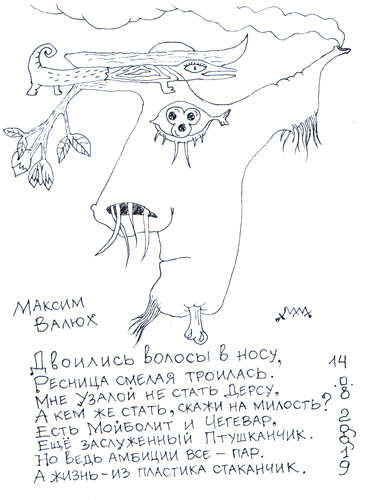 Максим
Валюх
Двоились волосы в носу, 14
Ресница смелая троилась. .0.
Мне Узалой не стать Дерсу, 8
А кем же стать, скажи на милость?
Есть Мойболит и Чегевар, 2
Ещё заслуженный Птушканчик.
Но ведь амбиции все – пар. 1
А жизнь – из пластика стаканчик. 9